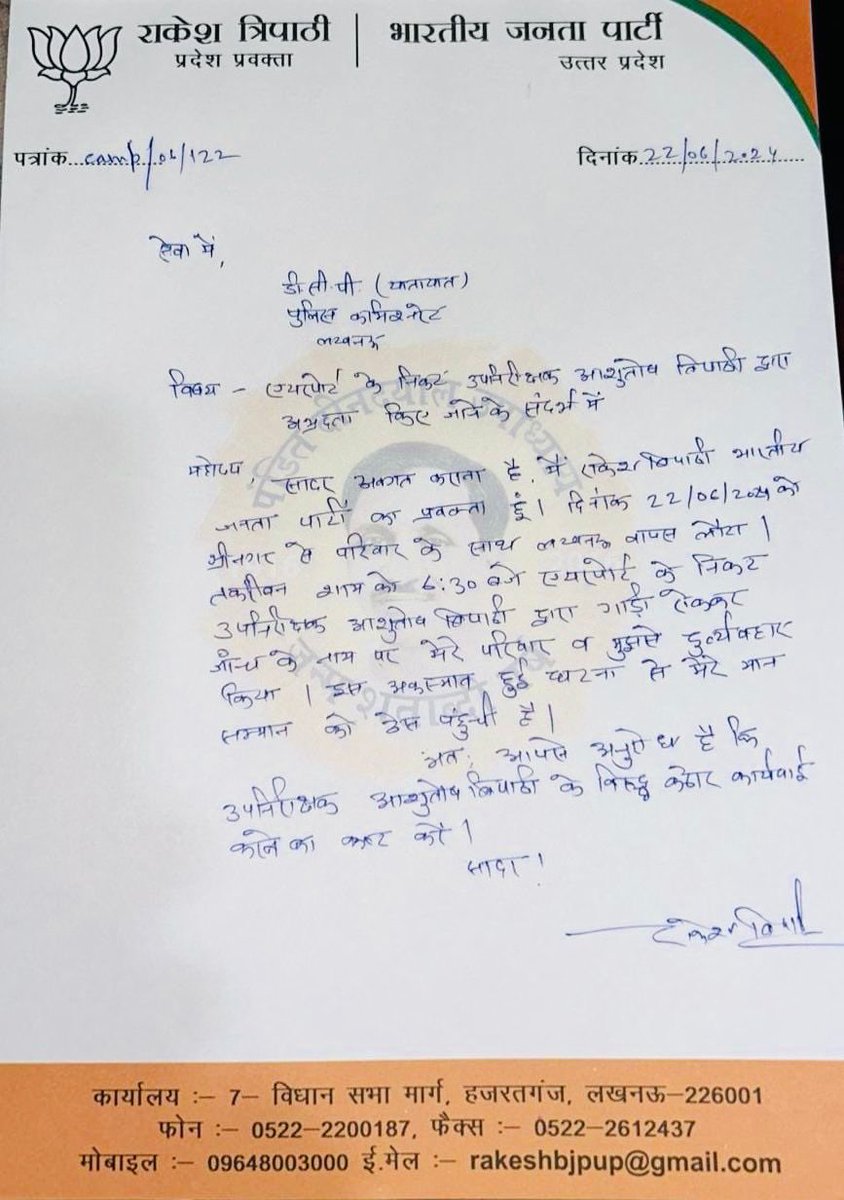 राकेश त्रिपाठी | भारतीय जनता पार्टी
प्रदेश प्रवक्ता उत्तर प्रदेश
पत्रांक...camp/06/122 दिनांक 22/06/2024
सेवा में,
डी.सी.पी. (यातायात)
पुलिस कमिश्नरेट
लखनऊ
विषय - एयरपोर्ट के निकट उपनिरीक्षक आशुतोष त्रिपाठी द्वारा
अभद्रता किए जाने के संदर्भ में
महोदय, सादर अवगत कराना है, मैं राकेश त्रिपाठी भारतीय
जनता पार्टी का प्रवक्ता हूं। दिनांक 22/06/2024 को
श्रीनगर से परिवार के साथ लखनऊ वापस लौटा।
तकरीबन शाम को 6:30 बजे एयरपोर्ट के निकट
उपनिरीक्षक आशुतोष त्रिपाठी द्वारा गाड़ी रोककर
जाँच के नाम पर मेरे परिवार व मुझसे दुर्व्यवहार
किया। इस अकस्मात हुई घटना से मेरे मान
सम्मान को ठेस पंहुची है।
अत: आपसे अनुरोध है कि
उपनिरीक्षक आशुतोष त्रिपाठी के विरुद्ध कठोर कार्यवाई
करने का कष्ट करें।
सादर।
राकेश त्रिपाठी
पंडित दीनदयाल उपाध्याय
जन्म शताब्दी वर्ष
कार्यालय :– 7– विधान सभा मार्ग, हजरतगंज, लखनऊ–226001
फोन :– 0522–2200187, फैक्स :– 0522–2612437
मोबाइल :– 09648003000 ई.मेल :– rakeshbjpup@gmail.com